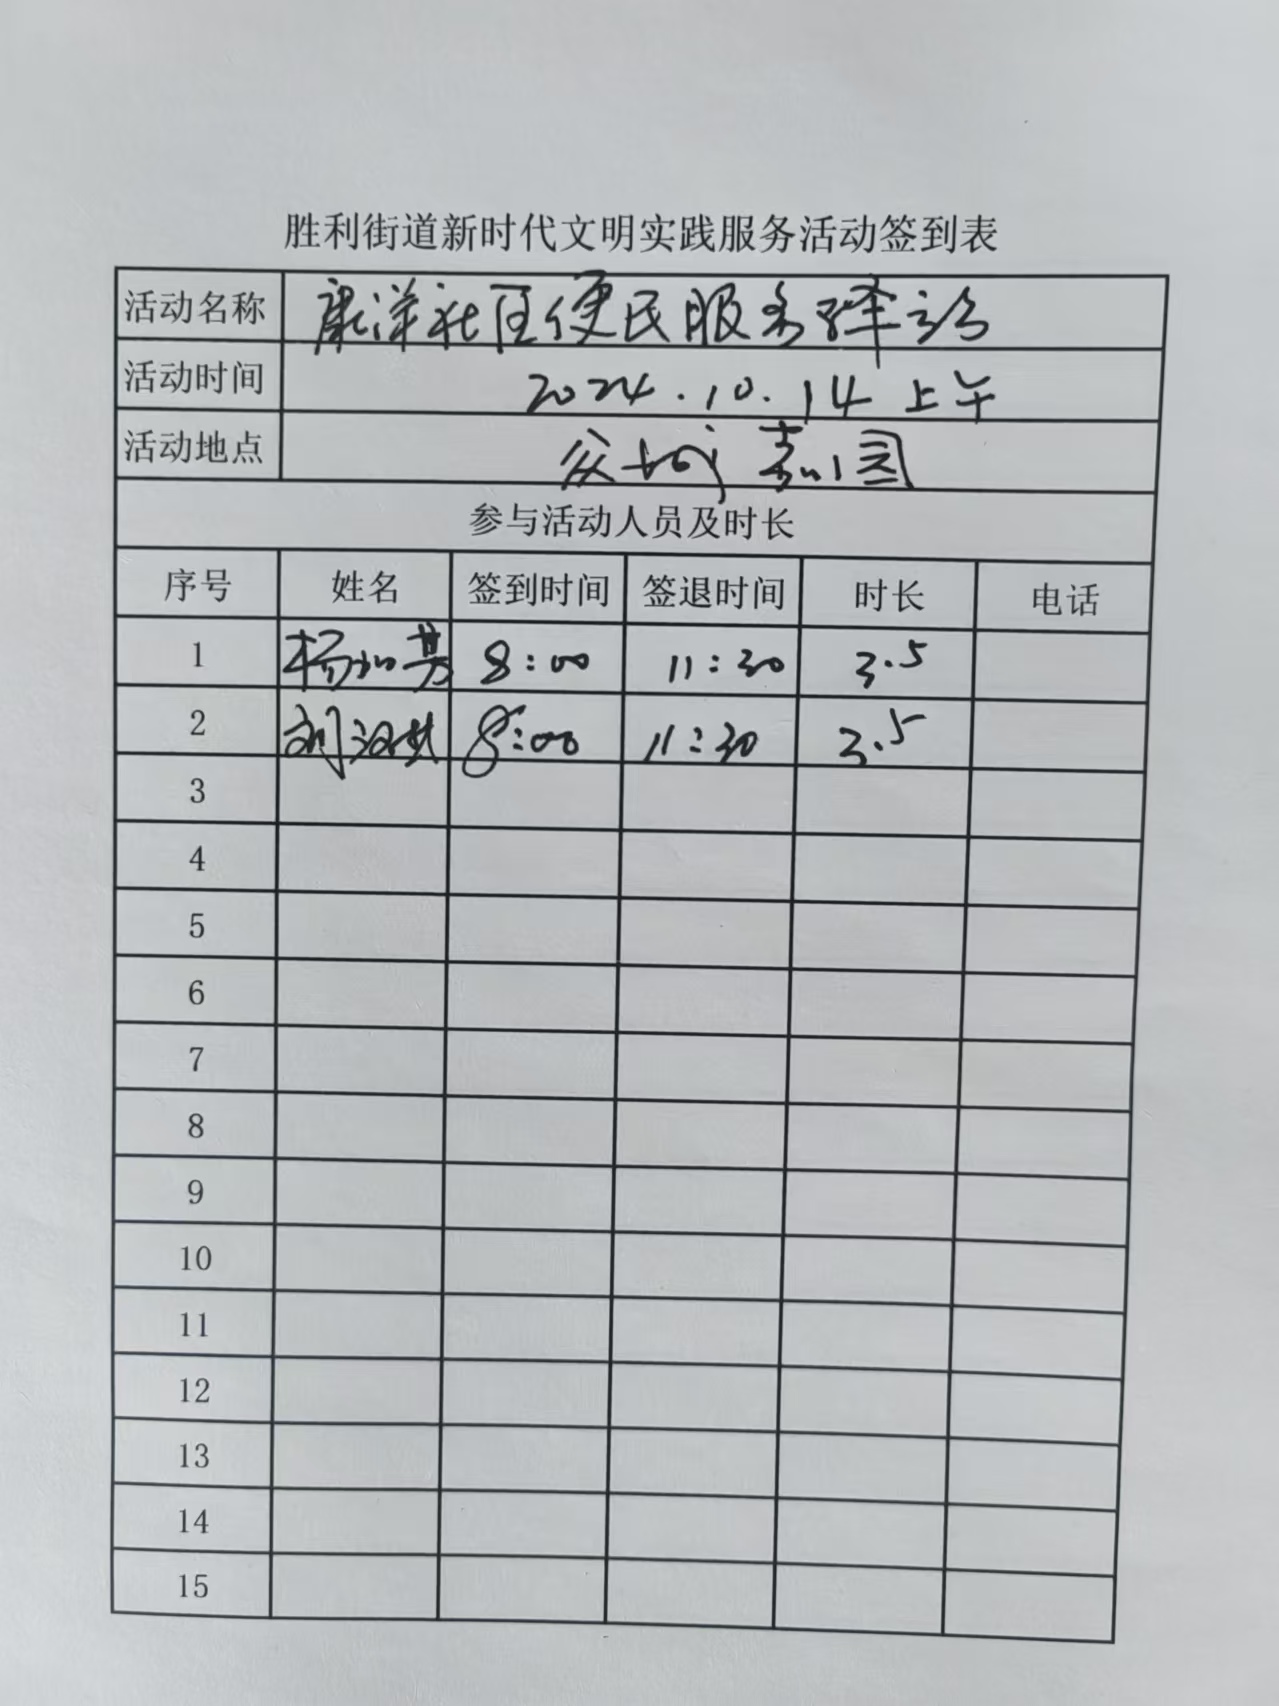 胜利街道新时代文明实践服务活动签到表
活动名称 康洋社区便民服务驿站
活动时间 2024.10.14 上午
活动地点 嘉园
参与活动人员及时长
序号 姓名 签到时间 签退时间 时长 电话
1 杨 8:00 11:30 3.5
2 刘汉 8:00 11:30 3.5
3
4
5
6
7
8
9
10
11
12
13
14
15